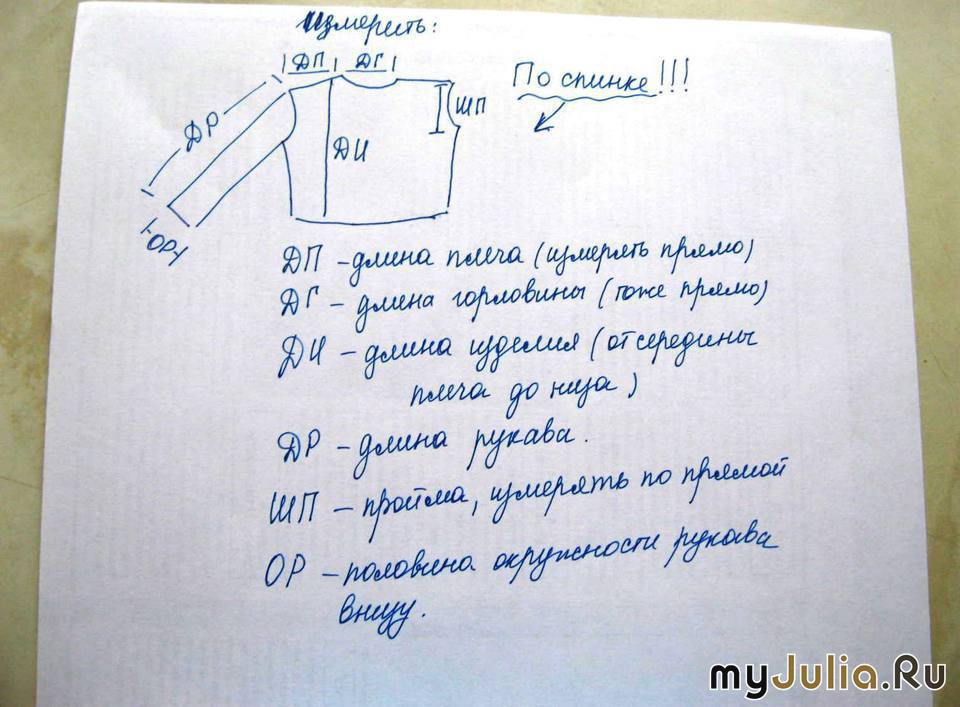 Измерить:
ДП ДГ
По спинке!!!
ШП
ДР
ДИ
ОР
ДП – длина плеча (измерять прямо)
ДГ – длина горловины (тоже прямо)
ДИ – длина изделия (от середины
плеча до низа)
ДР – длина рукава.
ШП – пройма, измерять по прямой
ОР – половина окружности рукава
внизу.
myJulia.Ru